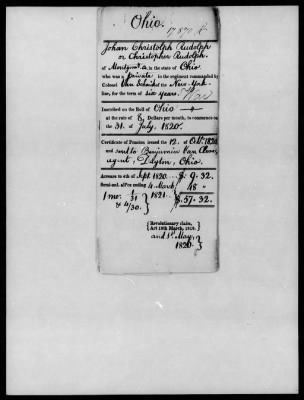 Ohio.
17,870
Johan Christolph Rudolph
or Christopher Rudolph.
of Montgom'a. in the state of Ohio
who was a private in the regiment commanded by
Colonel Van Schaick of the New York
line, for the term of six years.
Inscribed on the Roll of Ohio
at the rate of 8 Dollars per month, to commence on
the 31. of July, 1820.
Certificate of Pension issued the 12. of Octr. 1820
and sent to Benjamin Van Cleve,
agent, Dayton, Ohio.
Arrears to 4th of Sept. 1820. $. 9.32
Semi-anl. all'ce ending 4 March 48 "
1 mo. 1/31 } 1821. $.57.32.
& 4/30.
{ Revolutionary claim,
Act 18th March, 1818. }
and 1st May,
1820.